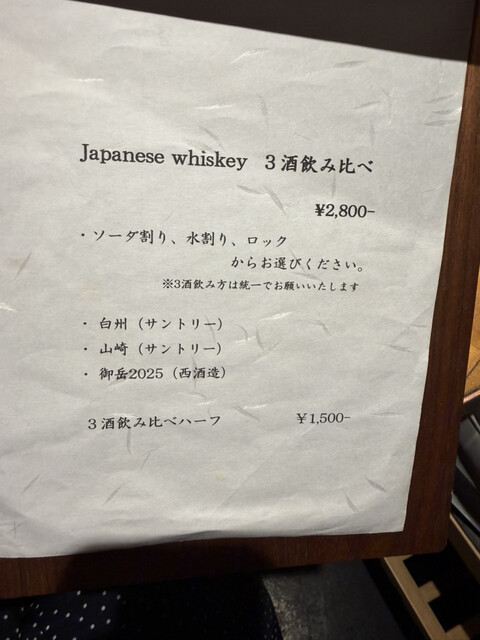 Japanese whiskey 3酒飲み比べ
¥2,800-
・ソーダ割り、水割り、ロック
からお選びください。
※3酒飲み方は統一でお願いいたします
・ 白州（サントリー）
・ 山崎（サントリー）
・ 御岳2025（西酒造）
3酒飲み比べハーフ ¥1,500-